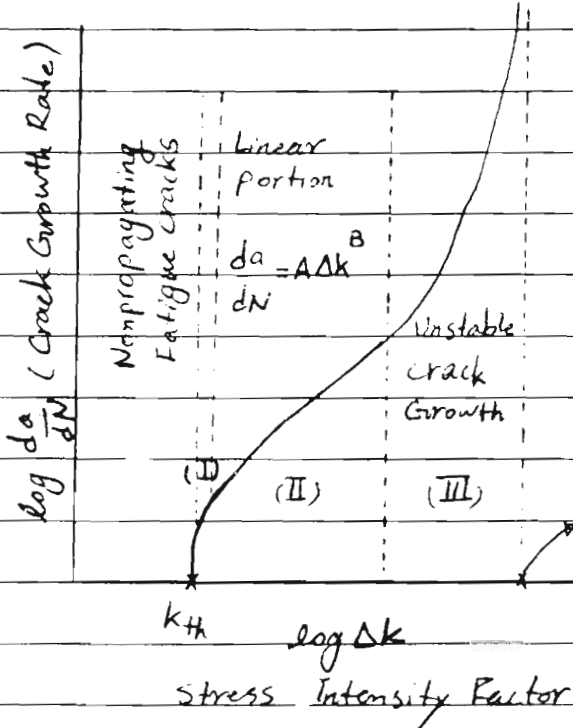 log da/dN (Crack Growth Rate)
Nonpropagating
Fatigue cracks
Linear
portion
da/dN = A Δk^B
Unstable
crack
Growth
(I)
(II)
(III)
k_th
log Δk
Stress Intensity Factor